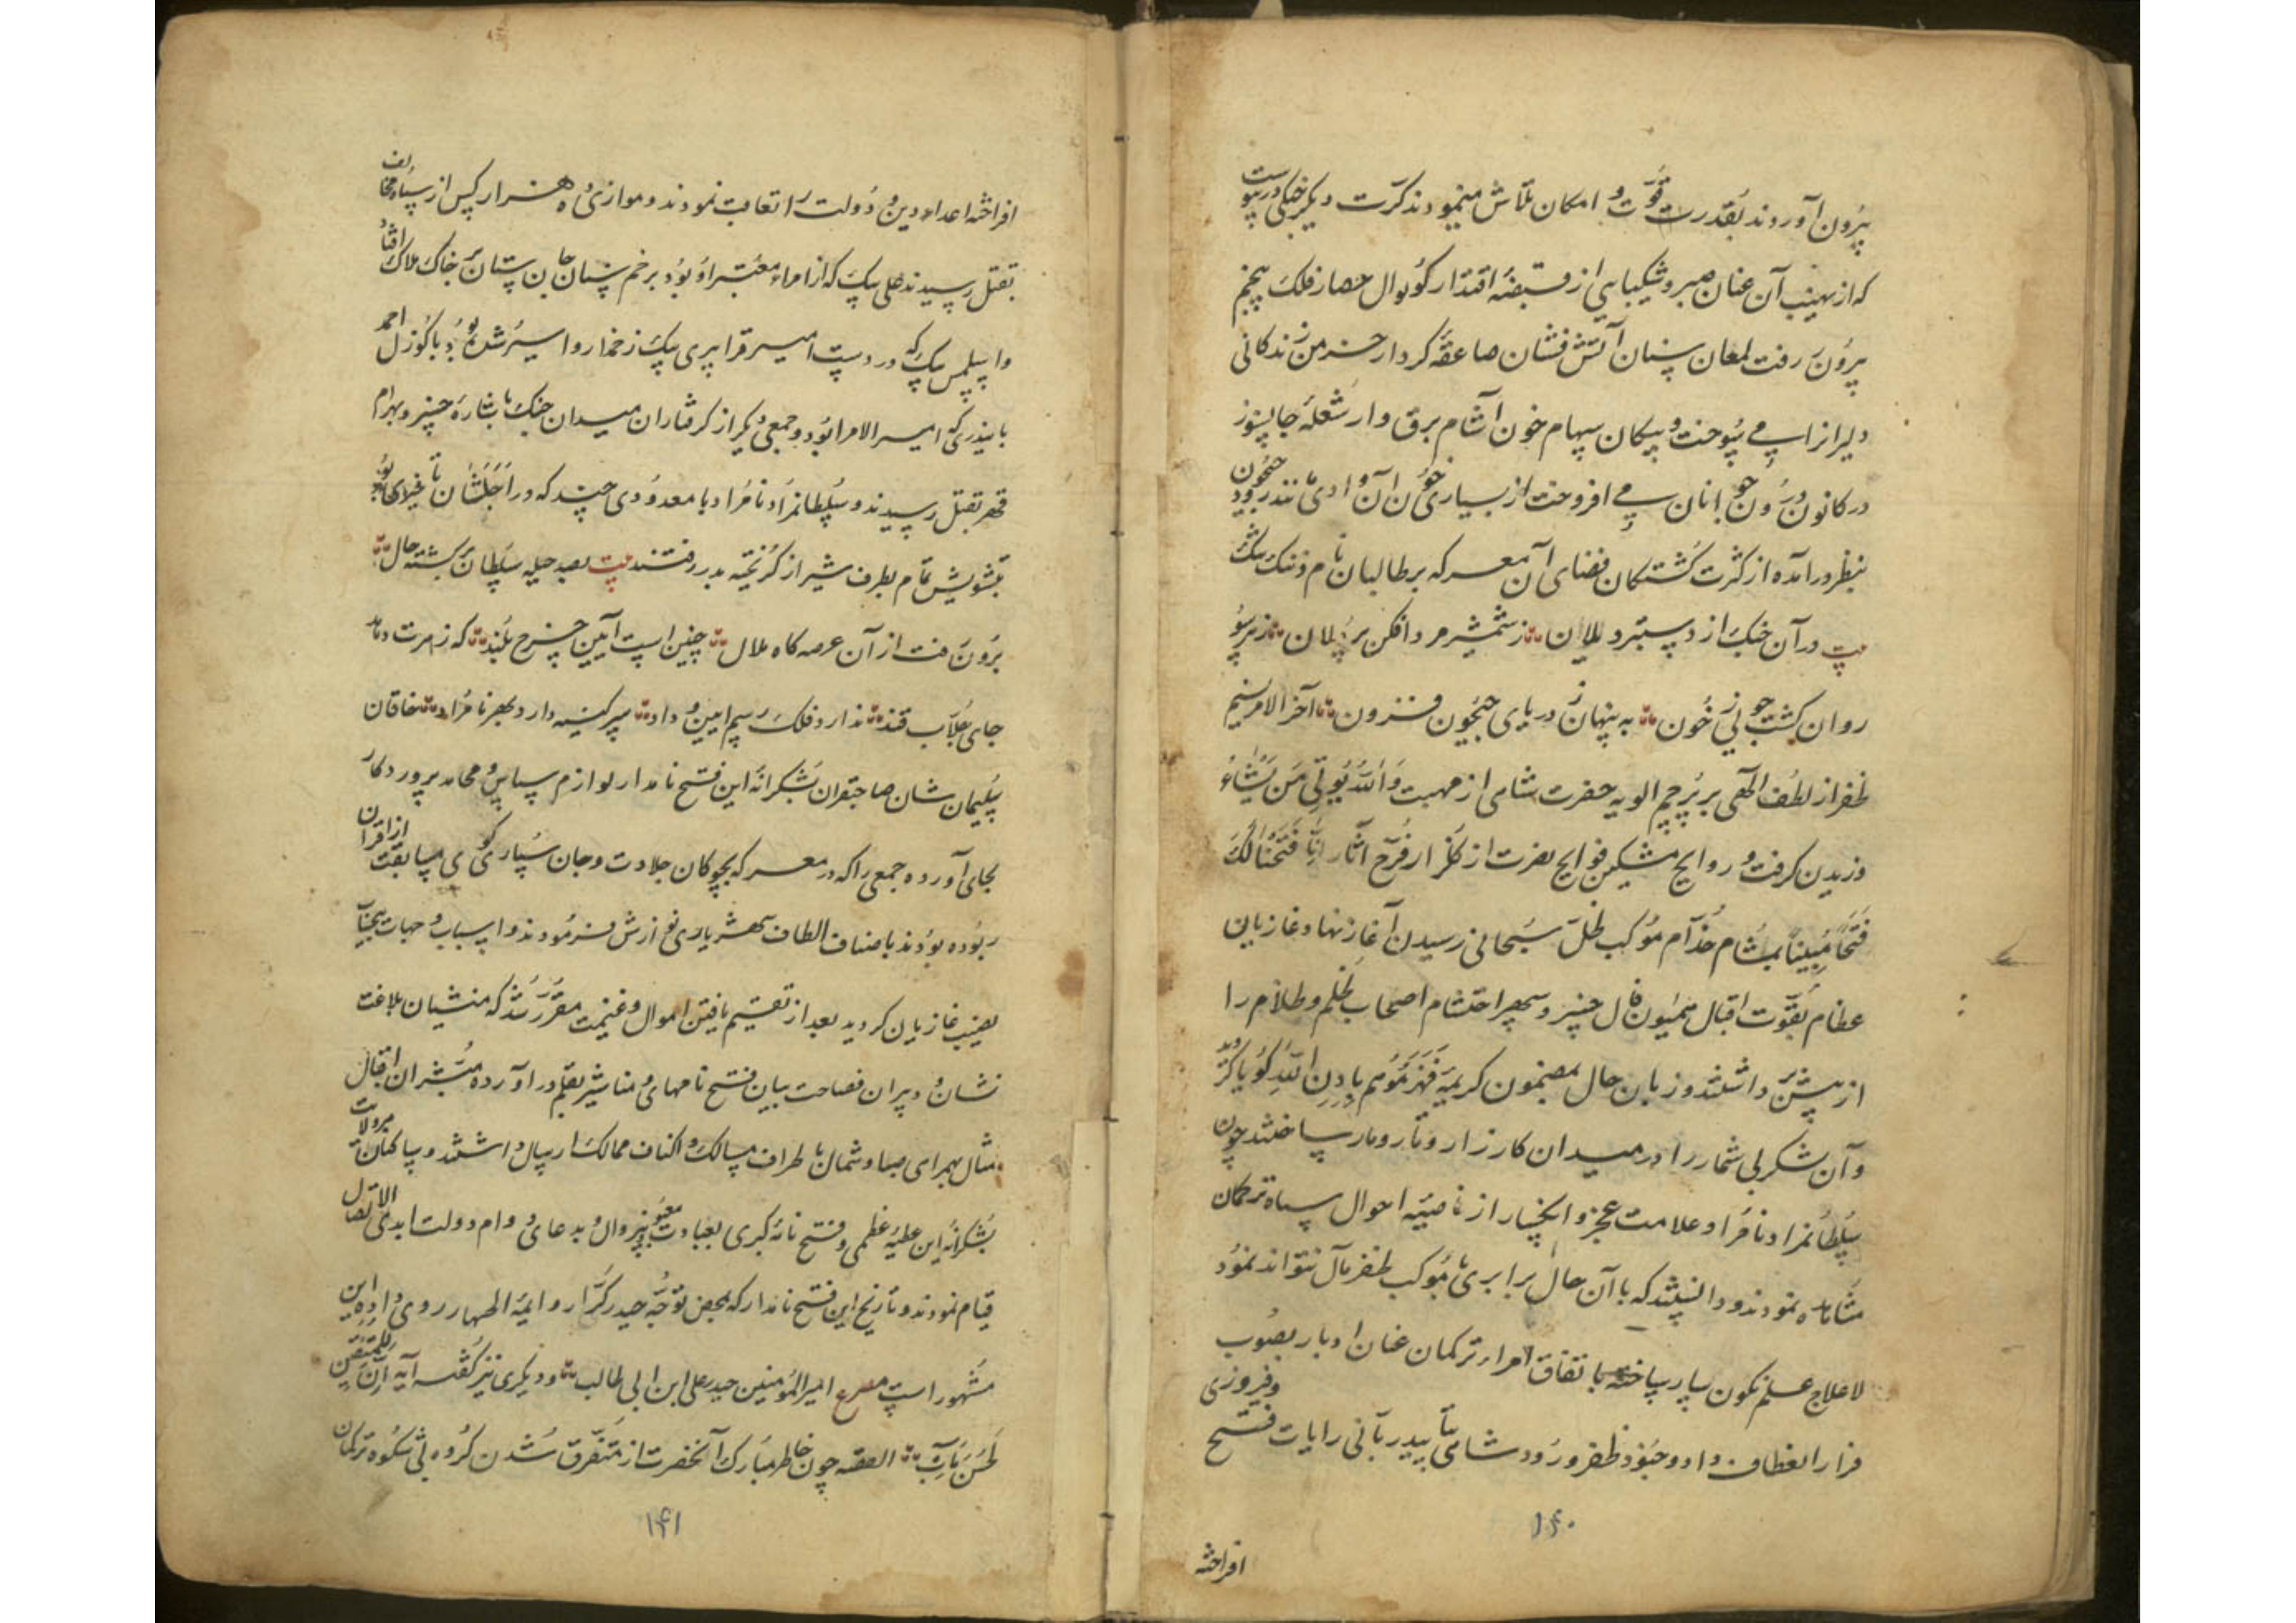 بیرون آوردند بقدر قوت و امکان تلاش مینمودند کرت دیگر جنگی درپیوست
که از نهیب آن عنان صبر و شکیبایی از قبضه اقتدار کوتوال حصار فلک پنجم
بیرون رفت لمعان سنان آتش فشان صاعقه کردار خرمن زندگانی
دلیرانرا می سوخت و پیکان سهام خون آشام برق وار شعله جانسوز
در کانون درون جوانان می افروخت از بسیاری خون آن وادی تندرود جیحون
بنظر درآمده از کثرت کشتگان فضای آن معرکه بر طالبان نام و ننک تنگ شد
بیت در آن جنک از دستبرد یلان ز شمشیر مرد افکن پردلان ز هر سو
روان کشت جویی ز خون به پنهان ز دریای جیحون فزون آخر الامر نسیم
ظفر از لطف الهی بر پرچم الویه حضرت شاهی از مهبت والله یؤتی من یشاء
وزیدن کرفت و روایح مشکین فوایح نصرت از کلزار فرح آثار انا فتحنا لک
فتحا مبینا بمشام خدام موکب ظل سبحانی رسیدن آغاز نهاد و غازیان
عظام بقوت اقبال همیون فال خسرو سپهر احتشام اصحاب ظلم و ظلام را
از پیش برداشتند و زبان حال بمضمون کریمه فهزموهم باذن الله کویا کردید
و آن لشکر بی شمار را در میدان کارزار و تار و مار ساختند چون
سلطانمراد نامراد علامت عجز و انکسار از ناصیه احوال سپاه ترکمان
مشاهده نمودند و دانستند که با آن حال برابری با موکب ظفر مآل نتواند نمود
لاعلاج علم نکون سار ساخته باتفاق امراء ترکمان عنان ادبار بصوب
فرار انعطاف داد و جنود ظفر ورود شاهی بتأیید ربانی رایات فتح و فیروزی
۱۴۰
افراخته
افراخته اعداء دین و دولت را تعاقب نمودند و موازی ده هزار کس از سپاه مخالف
بقتل رسیدند علی بیک که از امراء معتبر او بود بزخم سنان جان ستان بر خاک هلاک افتاد
و اسلمس بیک که در دست امیر قرا پیری بیک زخمدار و اسیر شده بود با کوزل احمد
بایندری که امیر الامرا بود و جمعی دیگر از کرفتاران میدان جنک باشاره خسرو بهرام
قهر بقتل رسیدند و سلطانمراد نامراد با معدودی چند که در اجلشان تأخیری بود
بتشویش تمام بطرف شیراز کریخته بدر رفتند بیت بصد حیله سلطان برکشته حال
برون رفت از آن عرصه کاه ملال چنین است آیین چرخ بلند که زهرت دهد
جای جلاب قند ندارد فلک رسم آیین و داد سر کینه دارد بهر نامراد خاقان
سلیمان شان صاحبقران بشکرانه این فتح نامدار لوازم سپاس و محامد پروردکار
بجای آورده جمعی را که در معرکه بچوکان جلادت و جان سپاری کوی مسابقت از اقران
ربوده بودند باصناف الطاف شهریاری نوازش فرمودند و اسباب و جهات بیحساب
نصیب غازیان کردید بعد از تقسیم یافتن اموال و غنیمت مقرر شد که منشیان بلاغت
نشان و دبیران فصاحت بیان فتح نامهای و مناشیر بقلم درآورده مبشران اقبال
مثال بهمراهی صبا و شمال باطراف مسالک و اکناف ممالک ارسال داشتند و ساکنان
بشکرانه این عطیه عظمی و فتح نامه کبری بعبادت معبود بیزوال و بدعای دوام دولت ابدی الاتصال
قیام نمودند و تاریخ این فتح نامدار که بمحض توجه حیدر کرار و ایمه اطهار روی داده این
مشهور است مصرع امیر المؤمنین حیدر علی ابن ابی طالب و دیگری نیز کفته آیه ان للمتقین
لحسن مآب القصه چون خاطر مبارک آنحضرت از متفرق شدن کروه بی شکوه ترکمان
۱۴۱